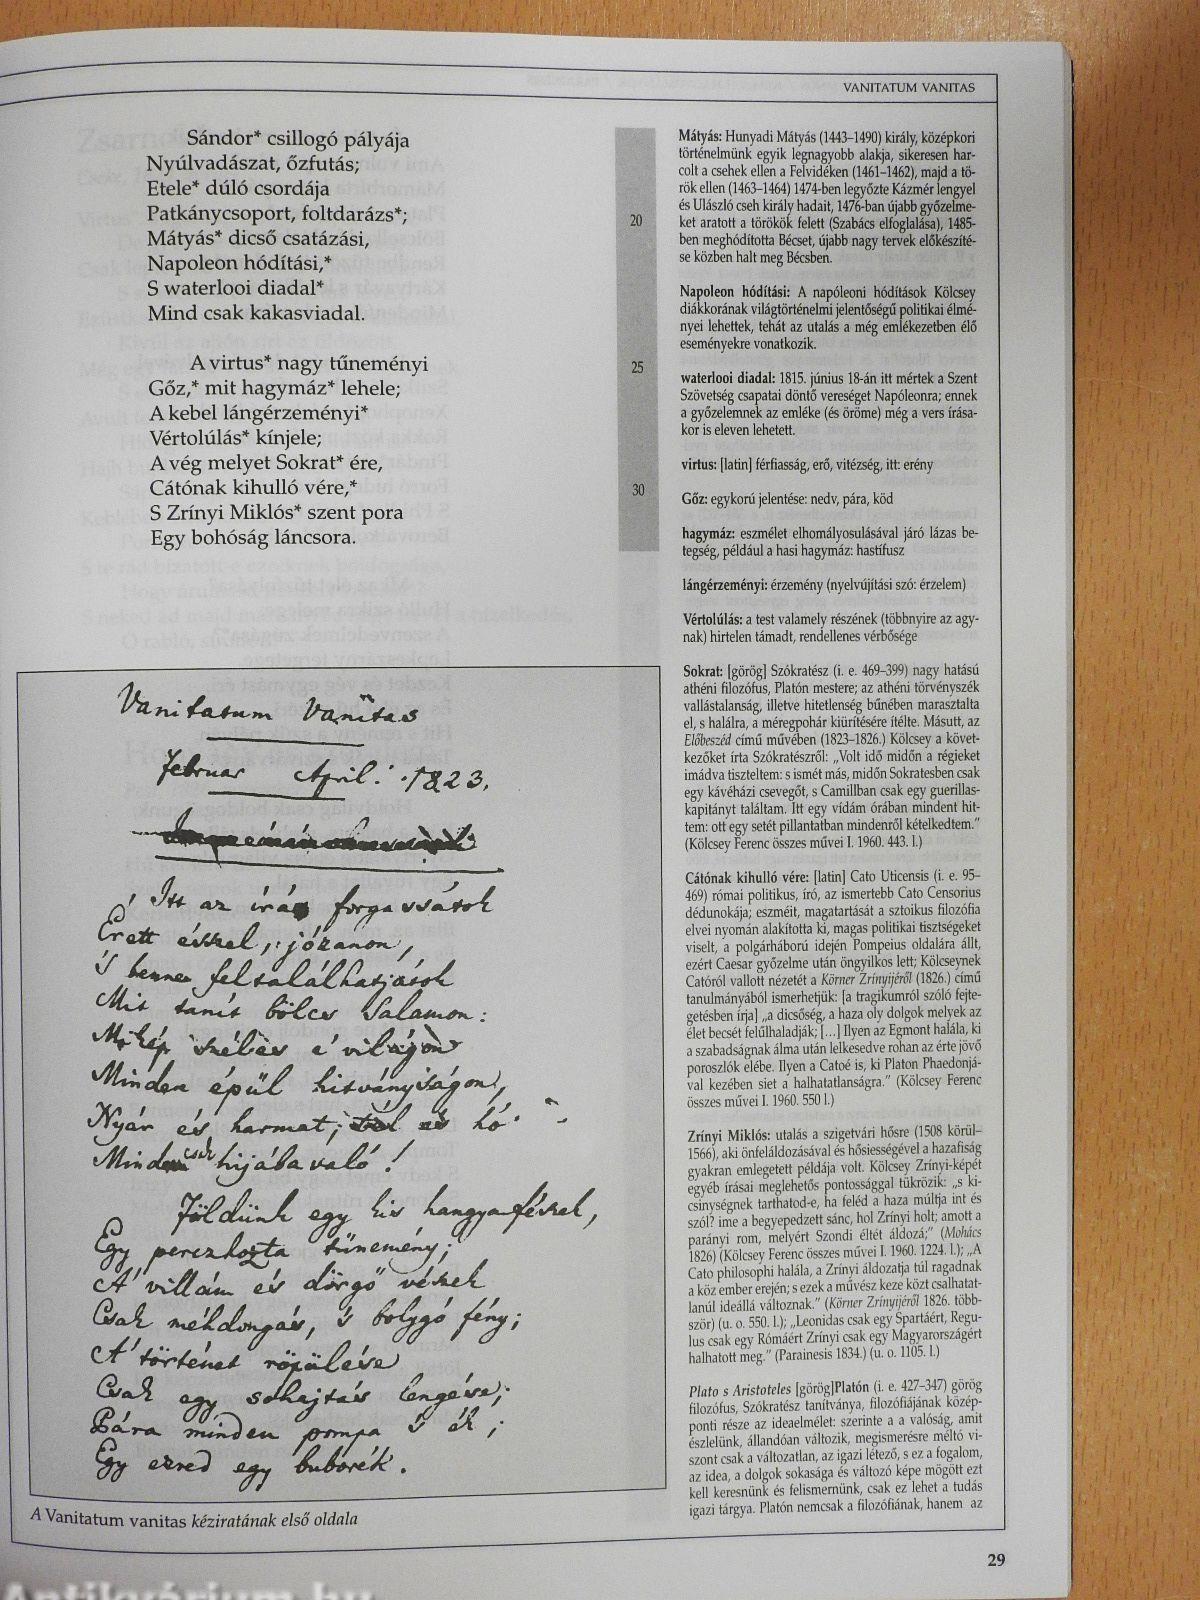 VANITATUM VANITAS
Sándor* csillogó pályája
Nyúlvadászat, őzfutás;
Etele* dúló csordája
Patkánycsoport, foltdarázs*;
20
Mátyás* dicső csatázási,
Napoleon hódítási,*
S waterlooi diadal*
Mind csak kakasviadal.
A virtus* nagy tűneményi
25
Gőz,* mit hagymáz* lehele;
A kebel lángérzeményi*
Vértolúlás* kínjele;
A vég melyet Sokrat* ére,
Cátónak kihulló vére,*
30
S Zrínyi Miklós* szent pora
Egy bohóság láncsora.
Vanitatum Vanitas
Februar April. 1823.
Itt az írás forgassátok
Érett ésszel, józanon,
S benne feltalálhatjátok
Mit tanít bölcs Salamon:
Mikép széllel e' világon
Minden épül hitványságon,
Nyár és harmat, tél és hó
Mind csak hijábavaló!
Földünk egy kis hangyafészek,
Egy perczhozta tűnemény;
A' villám és dörgő vészek
Csak méhdongás, 's bolygó fény;
A' történet röpülése
Csak egy sohajtás lengése;
Pára minden pompa 's ék;
Egy ezred egy buborék.
A Vanitatum vanitas kéziratának első oldala
Mátyás: Hunyadi Mátyás (1443–1490) király, középkori
történelmünk egyik legnagyobb alakja, sikeresen har-
colt a csehek ellen a Felvidéken (1461–1462), majd a tö-
rök ellen (1463–1464) 1474-ben legyőzte Kázmér lengyel
és Ulászló cseh király hadait, 1476-ban újabb győzelme-
ket aratott a törökök felett (Szabács elfoglalása), 1485-
ben meghódította Bécset, újabb nagy tervek előkészíté-
se közben halt meg Bécsben.
Napoleon hódítási: A napóleoni hódítások Kölcsey
diákkorának világtörténelmi jelentőségű politikai élmé-
nyei lehettek, tehát az utalás a még emlékezetben élő
eseményekre vonatkozik.
waterlooi diadal: 1815. június 18-án itt mértek a Szent
Szövetség csapatai döntő vereséget Napóleonra; ennek
a győzelemnek az emléke (és öröme) még a vers írása-
kor is eleven lehetett.
virtus: [latin] férfiasság, erő, vitézség, itt: erény
Gőz: egykorú jelentése: nedv, pára, köd
hagymáz: eszmélet elhomályosulásával járó lázas be-
tegség, például a hasi hagymáz: hastífusz
lángérzeményi: érzemény (nyelvújítási szó: érzelem)
Vértolúlás: a test valamely részének (többnyire az agy-
nak) hirtelen támadt, rendellenes vérbősége
Sokrat: [görög] Szókratész (i. e. 469–399) nagy hatású
athéni filozófus, Platón mestere; az athéni törvényszék
vallástalanság, illetve hitetlenség bűnében marasztalta
el, s halálra, a méregpohár kiürítésére ítélte. Másutt, az
Előbeszéd című művében (1823–1826.) Kölcsey a követ-
kezőket írta Szókratészről: „Volt idő midőn a régieket
imádva tiszteltem: s ismét más, midőn Sokratesben csak
egy kávéházi csevegőt, s Camillban csak egy guerillas-
kapitányt találtam. Itt egy vídám órában mindent hit-
tem: ott egy setét pillantatban mindenről kételkedtem.”
(Kölcsey Ferenc összes művei I. 1960. 443. l.)
Cátónak kihulló vére: [latin] Cato Uticensis (i. e. 95–
469) római politikus, író, az ismertebb Cato Censorius
dédunokája; eszméit, magatartását a sztoikus filozófia
elvei nyomán alakította ki, magas politikai tisztségeket
viselt, a polgárháború idején Pompeius oldalára állt,
ezért Caesar győzelme után öngyilkos lett; Kölcseynek
Catóról vallott nézetét a Körner Zrínyijéről (1826.) című
tanulmányából ismerhetjük: [a tragikumról szóló fejte-
getésben írja] „a dicsőség, a haza oly dolgok melyek az
élet becsét felűlhaladják; [...] Ilyen az Egmont halála, ki
a szabadságnak álma után lelkesedve rohan az érte jövő
poroszlók elébe. Ilyen a Catoé is, ki Platon Phaedonjá-
val kezében siet a halhatatlanságra.” (Kölcsey Ferenc
összes művei I. 1960. 550 l.)
Zrínyi Miklós: utalás a szigetvári hősre (1508 körül–
1566), aki önfeláldozásával és hősiességével a hazafiság
gyakran emlegetett példája volt. Kölcsey Zrínyi-képét
egyéb írásai meglehetős pontossággal tükrözik: „s ki-
csinységnek tarthatod-e, ha feléd a haza múltja int és
szól? ime a begyepedzett sánc, hol Zrínyi holt; amott a
parányi rom, melyért Szondi éltét áldozá;” (Mohács
1826) (Kölcsey Ferenc összes művei I. 1960. 1224. l.); „A
Cato philosophi halála, a Zrínyi áldozatja túl ragadnak
a köz ember erején; s ezek a művész keze közt csalhatat-
lanúl ideállá változnak.” (Körner Zrínyijéről 1826. több-
ször) (u. o. 550. l.); „Leonidas csak egy Spartáért, Regu-
lus csak egy Rómáért Zrínyi csak egy Magyarországért
halhatott meg.” (Parainesis 1834.) (u. o. 1105. l.)
Plato s Aristoteles [görög]Platón (i. e. 427–347) görög
filozófus, Szókratész tanítványa, filozófiájának közép-
ponti része az ideaelmélet: szerinte a a valóság, amit
észlelünk, állandóan változik, megismerésre méltó vi-
szont csak a változatlan, az igazi létező, s ez a fogalom,
az idea, a dolgok sokasága és változó képe mögött ezt
kell keresnünk és felismernünk, csak ez lehet a tudás
igazi tárgya. Platón nemcsak a filozófiának, hanem az
29